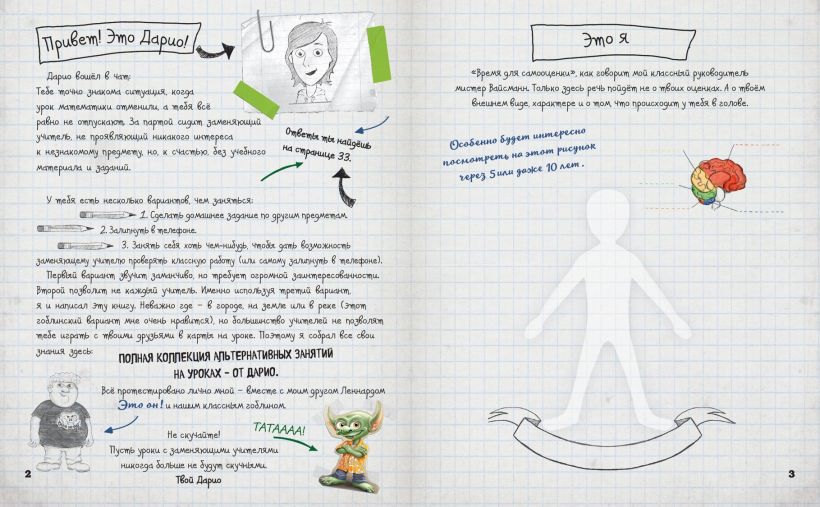 Привет! Это Дарио!
Дарио вошёл в чат:
Тебе точно знакома ситуация, когда
урок математики отменили, а тебя всё
равно не отпускают. За партой сидит заменяющий
учитель, не проявляющий никакого интереса
к незнакомому предмету, но, к счастью, без учебного
материала и заданий.
Ответы ты найдёшь
на странице 33.
У тебя есть несколько вариантов, чем заняться:
1. Сделать домашнее задание по другим предметам.
2. Залипнуть в телефоне.
3. Занять себя хоть чем-нибудь, чтобы дать возможность
заменяющему учителю проверять классную работу (или самому залипнуть в телефоне).
Первый вариант звучит заманчиво, но требует огромной заинтересованности.
Второй позволит не каждый учитель. Именно используя третий вариант,
я и написал эту книгу. Неважно где – в городе, на земле или в реке (этот
гоблинский вариант мне очень нравится), но большинство учителей не позволят
тебе играть с твоими друзьями в карты на уроке. Поэтому я собрал все свои
знания здесь:
ПОЛНАЯ КОЛЛЕКЦИЯ АЛЬТЕРНАТИВНЫХ ЗАНЯТИЙ
НА УРОКАХ – ОТ ДАРИО.
Всё протестировано лично мной – вместе с моим другом Леннардом
Это он! и нашим классным гоблином.
ТАТАААА!
Не скучайте!
Пусть уроки с заменяющими учителями
никогда больше не будут скучными.
Твой Дарио
2
Это я
«Время для самооценки», как говорит мой классный руководитель
мистер Вайсманн. Только здесь речь пойдёт не о твоих оценках. А о твоём
внешнем виде, характере и о том, что происходит у тебя в голове.
Особенно будет интересно
посмотреть на этот рисунок
через 5 или даже 10 лет.
3